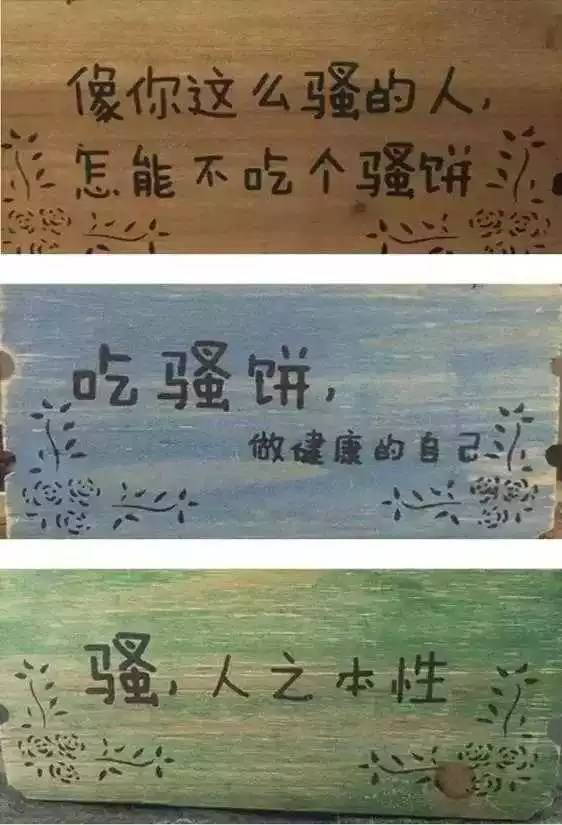 像你这么骚的人,
怎能不吃个骚饼
吃骚饼,
做健康的自己
骚,人之本性